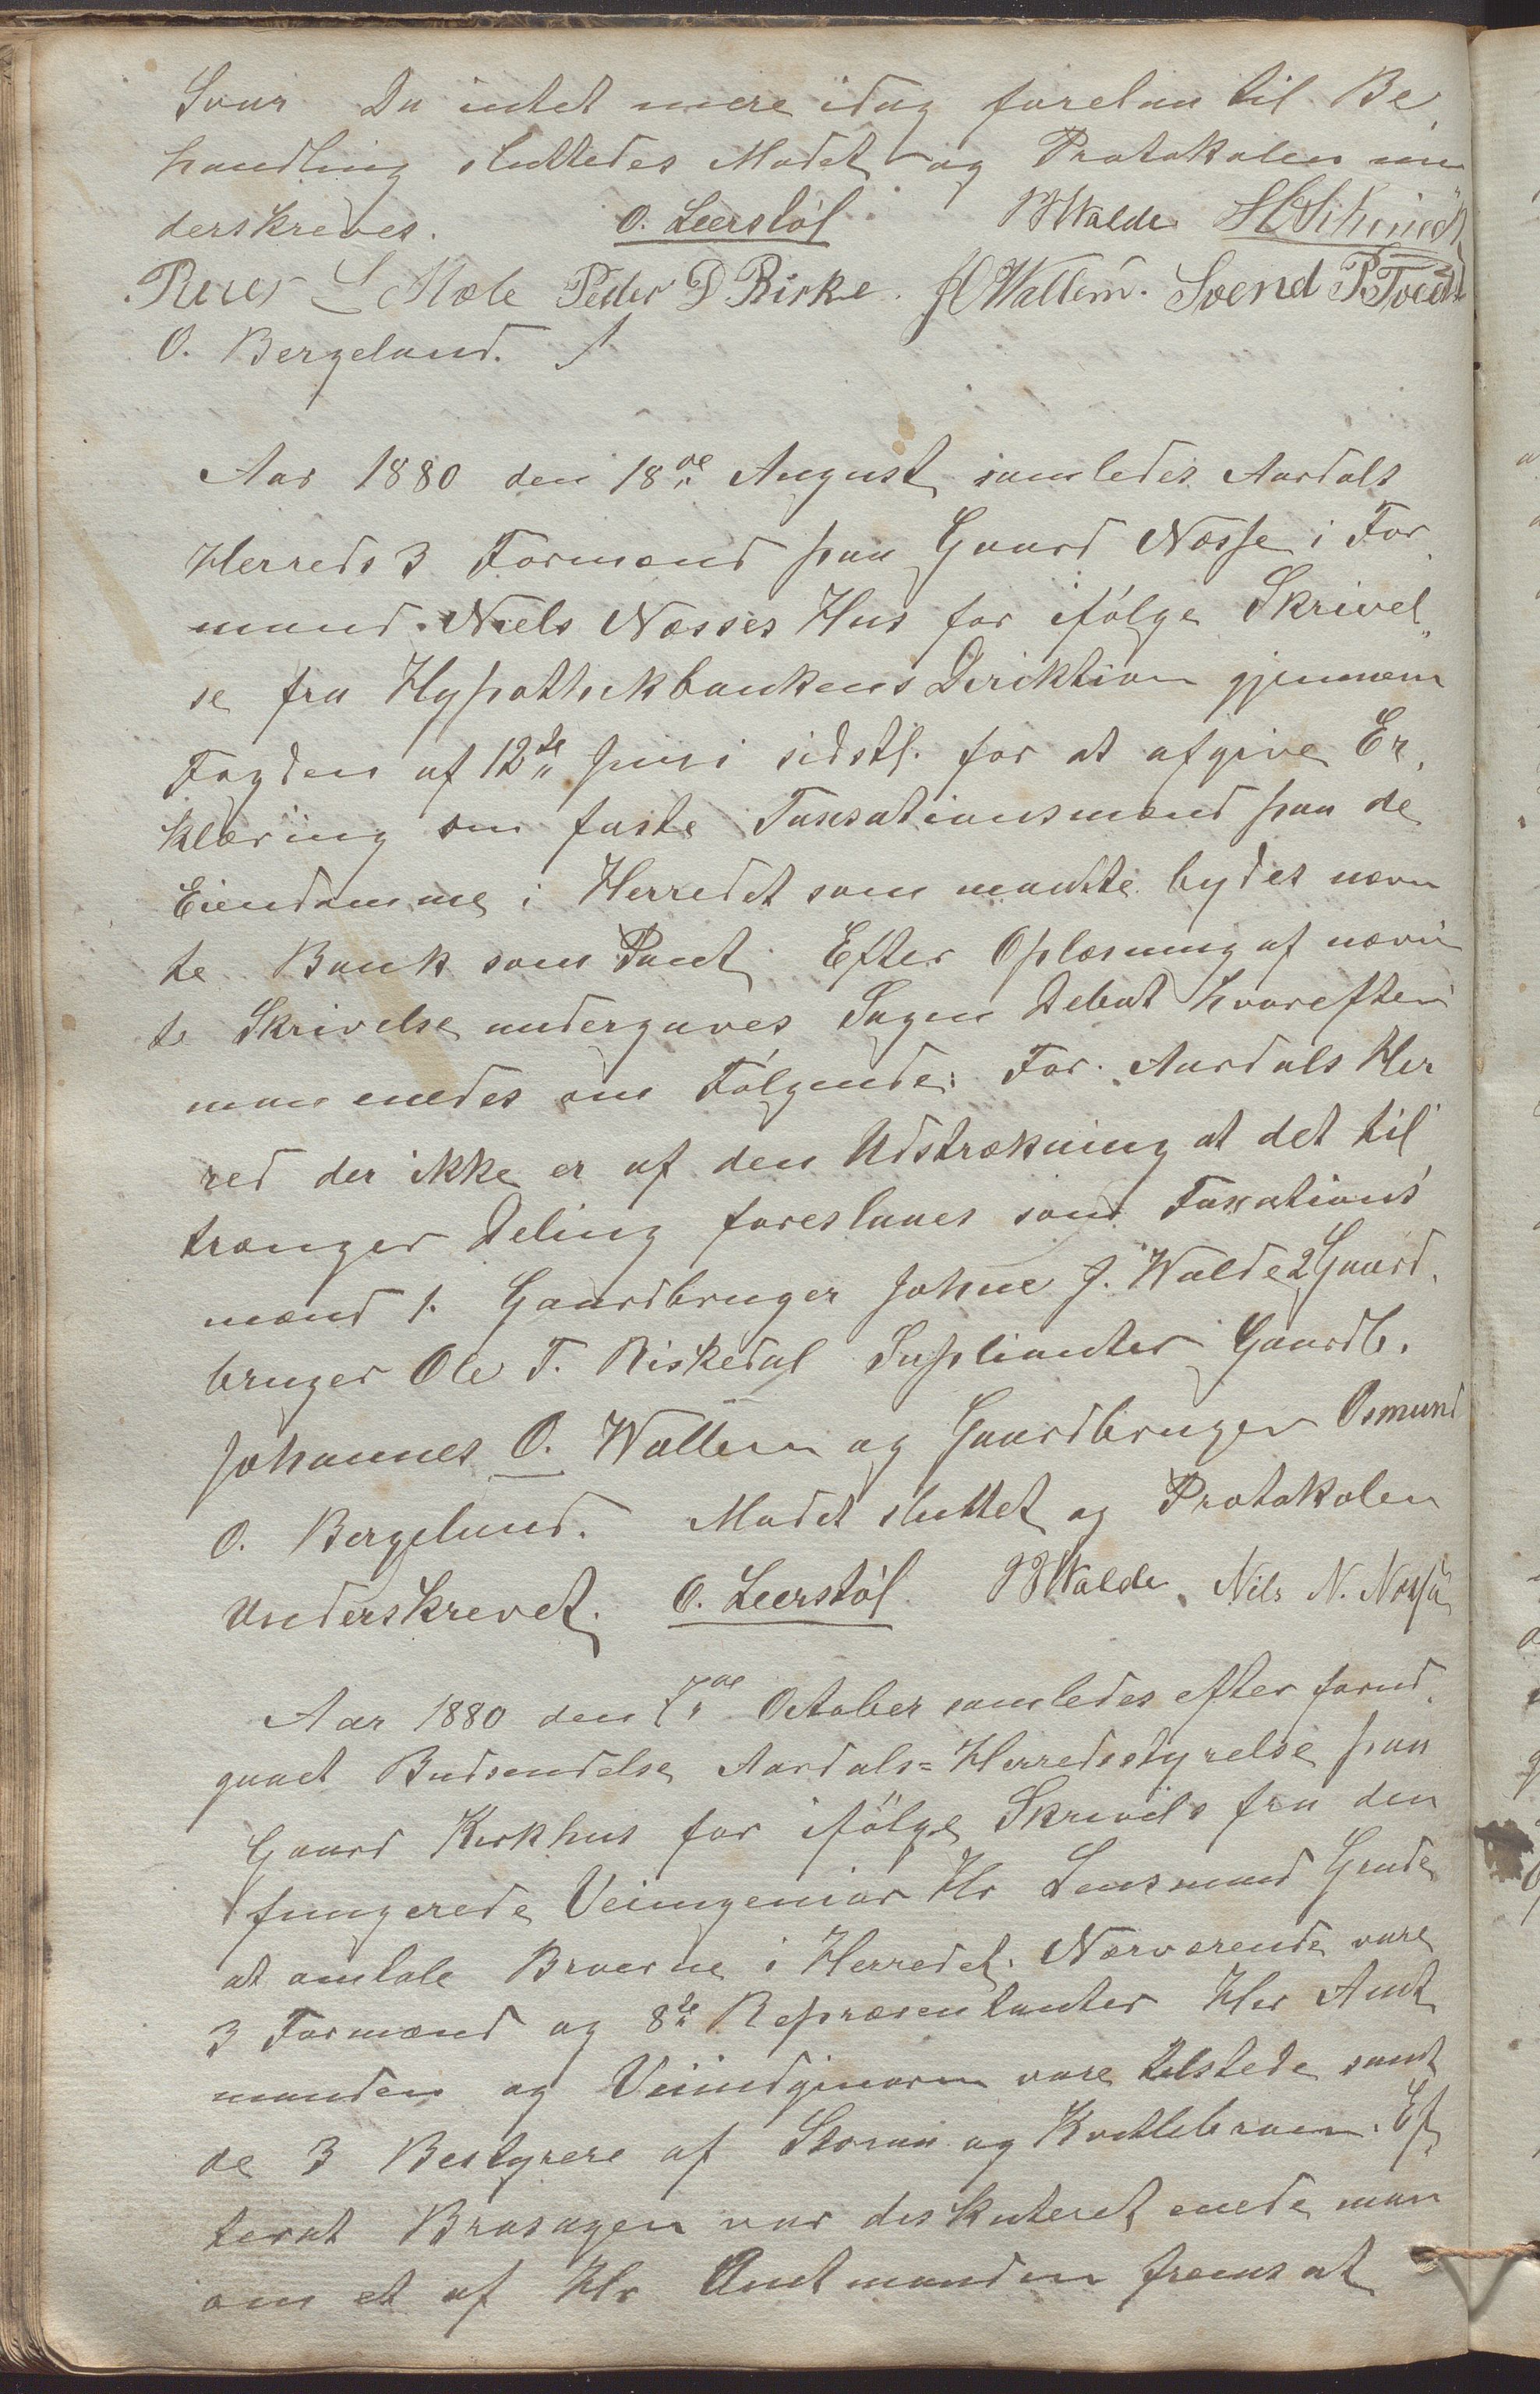 Svar Da intet mere idag forelaa til Be,
handling sluttedes Mødet og Protokolen un„
derskreves. O. Leerstøl Walde
L Mæle Peder P Riske. JOWallem. Svend P Tvedt
O. Bergeland.
Aar 1880 den 18de August samledes Aardals
Herreds 3 Formænd paa Gaard Næsse i For,
mand. Niels Næsses Hus for ifølge Skrivel„
se fra Hypothekbankens Direktion gjennem
Fogden af 12te Juni sidstl. for at afgive Er,
klæring om faste Taxsationsmænd paa de
Eiendomme i Herredet som maatte bydes nævn
te Bank som Pant Efter Oplæsning af nævn
te Skrivelse undergaves Sagen Debat hvorefter
man enedes om Følgende: For Aardals Her
red der ikke er af den Udstrækning at det til
trænger Deling foreslaaes som Taxations
mænd 1. Gaardbruger Johne J. Walde 2 Gaard,
bruger Ole T. Riskedal Suplianter Gaardb.
Johannes O. Wallem og Gaardbruger Osmund
O. Bergeland. Mødet sluttet og Protokolen
Underskrevet. O. Leerstøl Walde, Nils N. Næsse
Aar 1880 den 7de October samledes efter forud,
gaaet Budsendelse Aardals=Herredsstyrelse paa
Gaard Kirkhus for ifølge Skrivels fra den
fungerede Veiingeniør Hr Lensmand Grude
at omtale Broerne i Herredet. Nærværende vare
3 Formænd og 8te Repræsentanter Hr Amt
manden og Veiindginøren vare tilstede samt
de 3 Bestyrere af Storaa og Kvitlebroen. Ef„
terat Brosagen var diskuteret enede man
om et af Hr Amtmanden fremsat